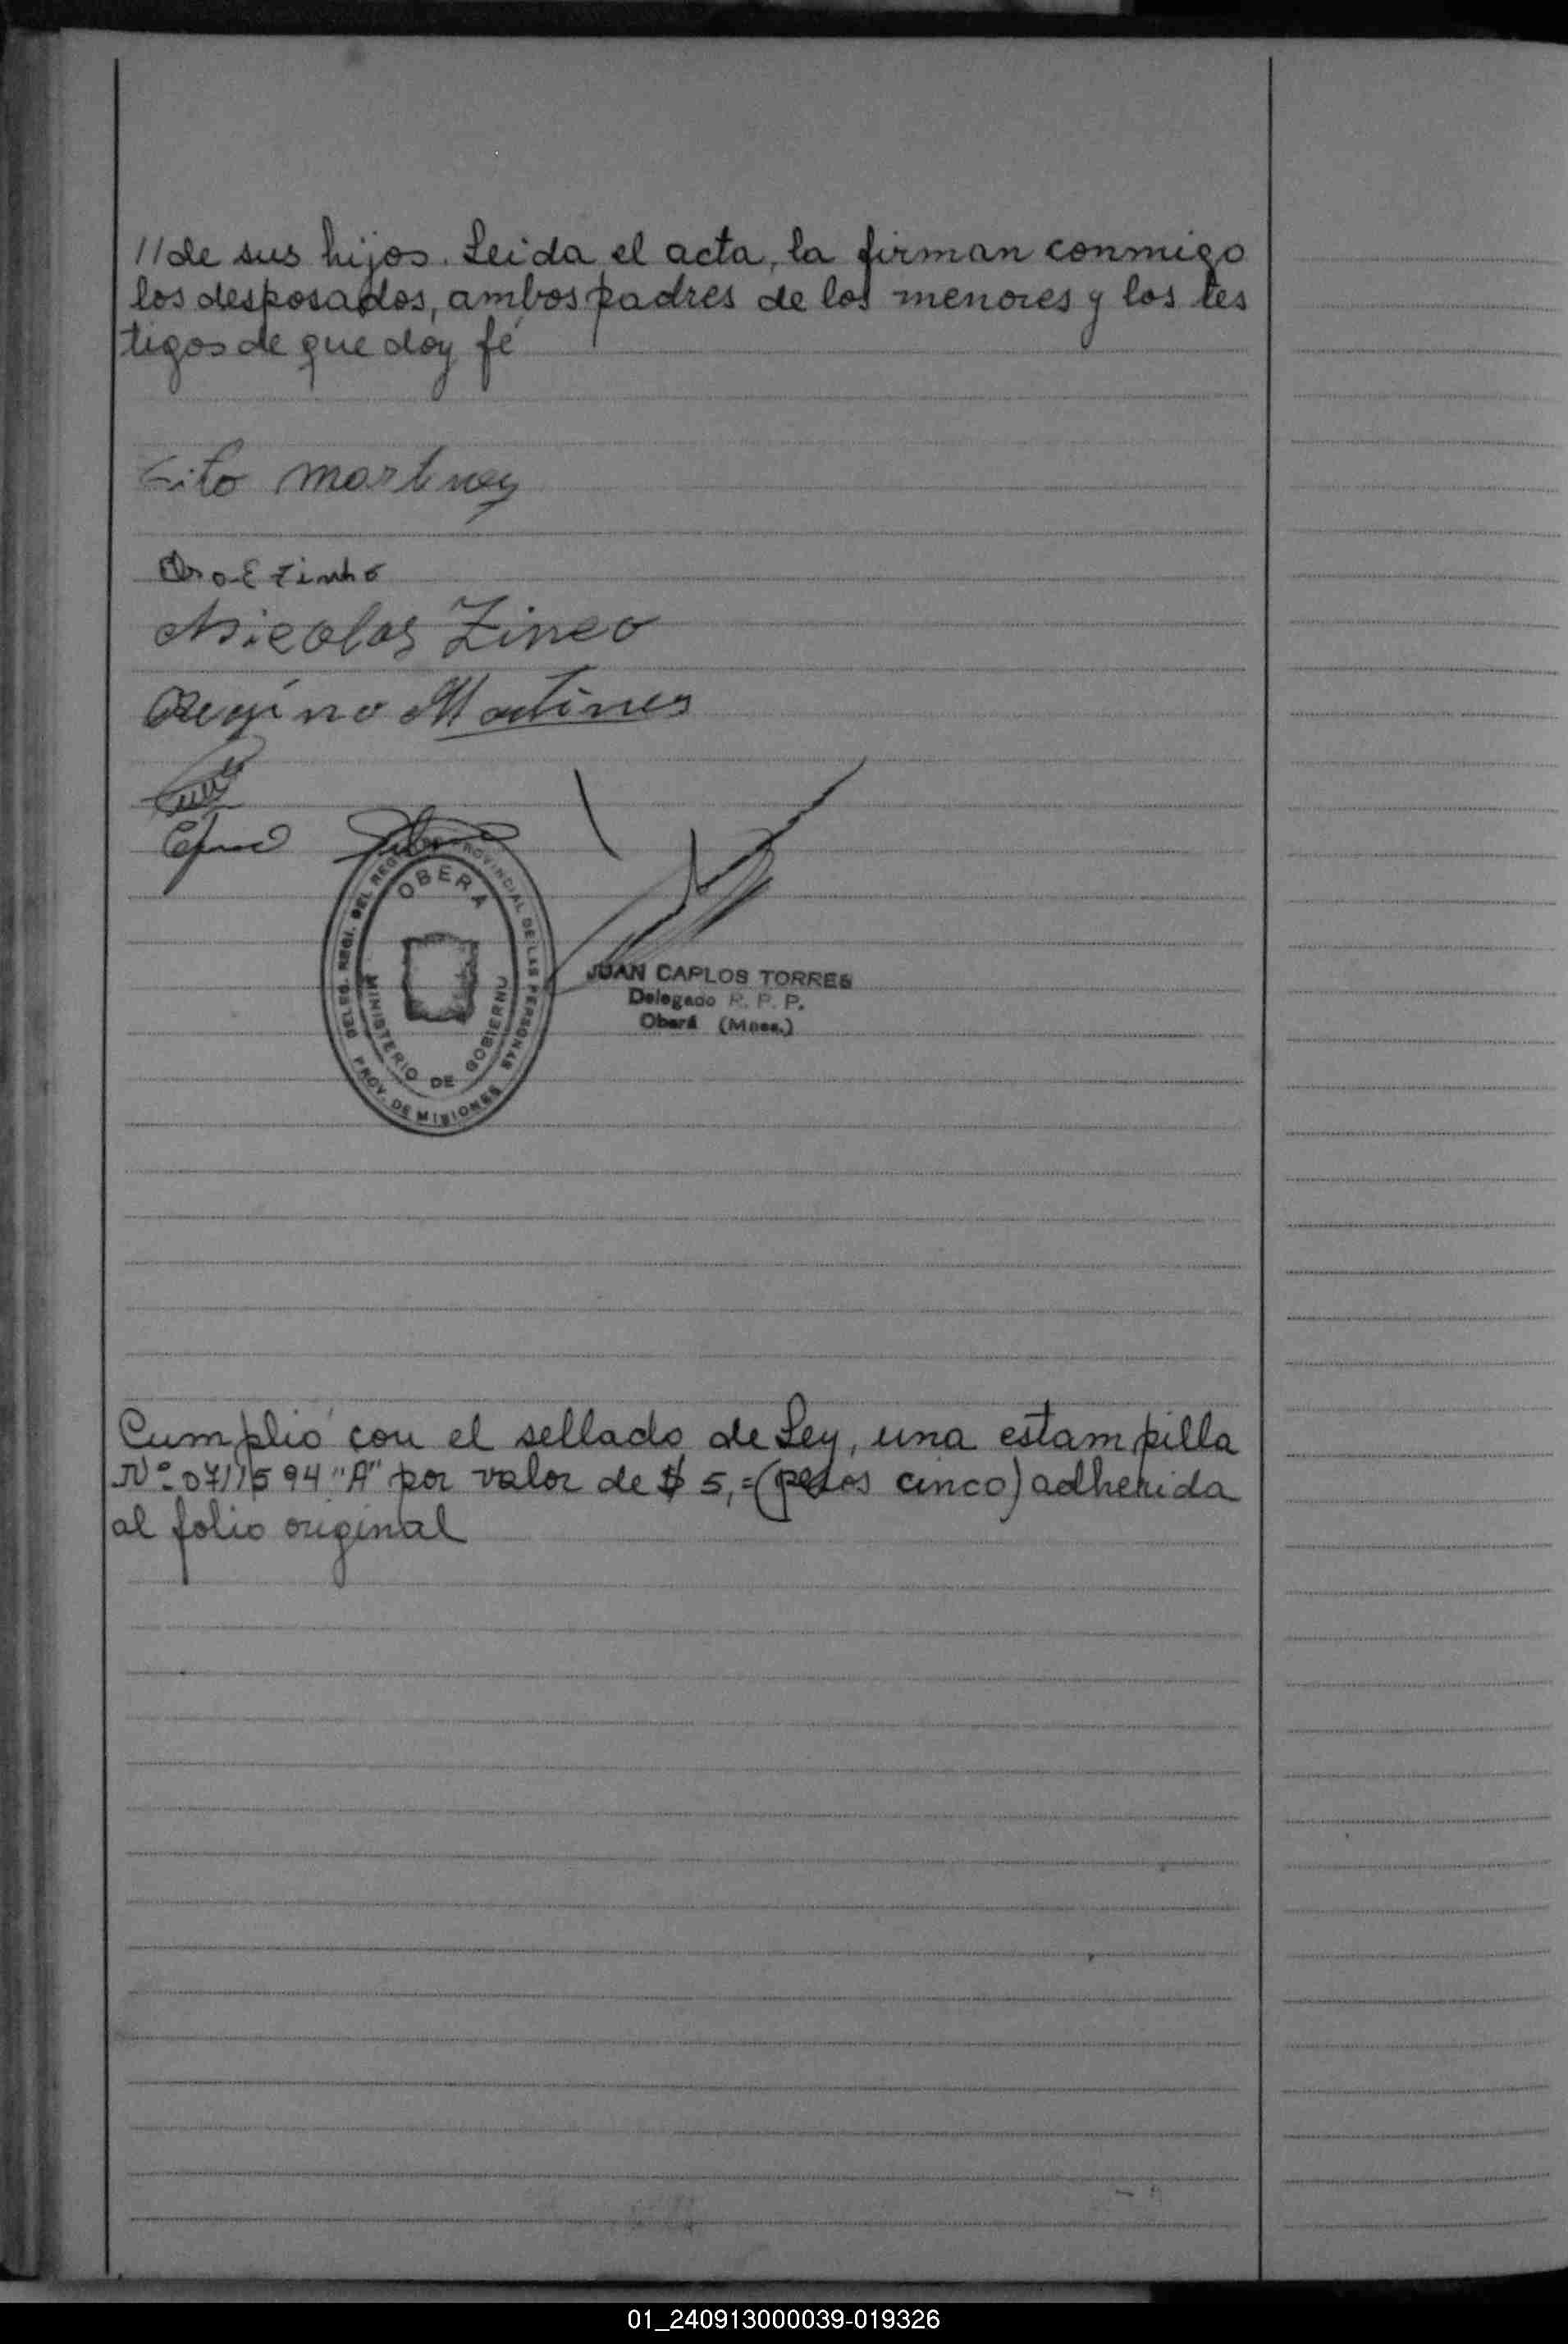 //de sus hijos. Leida el acta, la firman conmigo
los desposados, ambos padres de los menores y los tes
tigos de que doy fé
martinez
Nicolas Zineo
Regino Martines
OBERA
DELEG. REGI. DEL REGISTRO PROVINCIAL DE LAS PERSONAS
MINISTERIO DE GOBIERNO
PROV. DE MISIONES
JUAN CARLOS TORRES
Delegado R. P. P.
Oberá (Mnes.)
Cumplió con el sellado de Ley, una estampilla
Nº 0711594 "A" por valor de $ 5,=(pesos cinco) adherida
al folio original
01_240913000039-019326